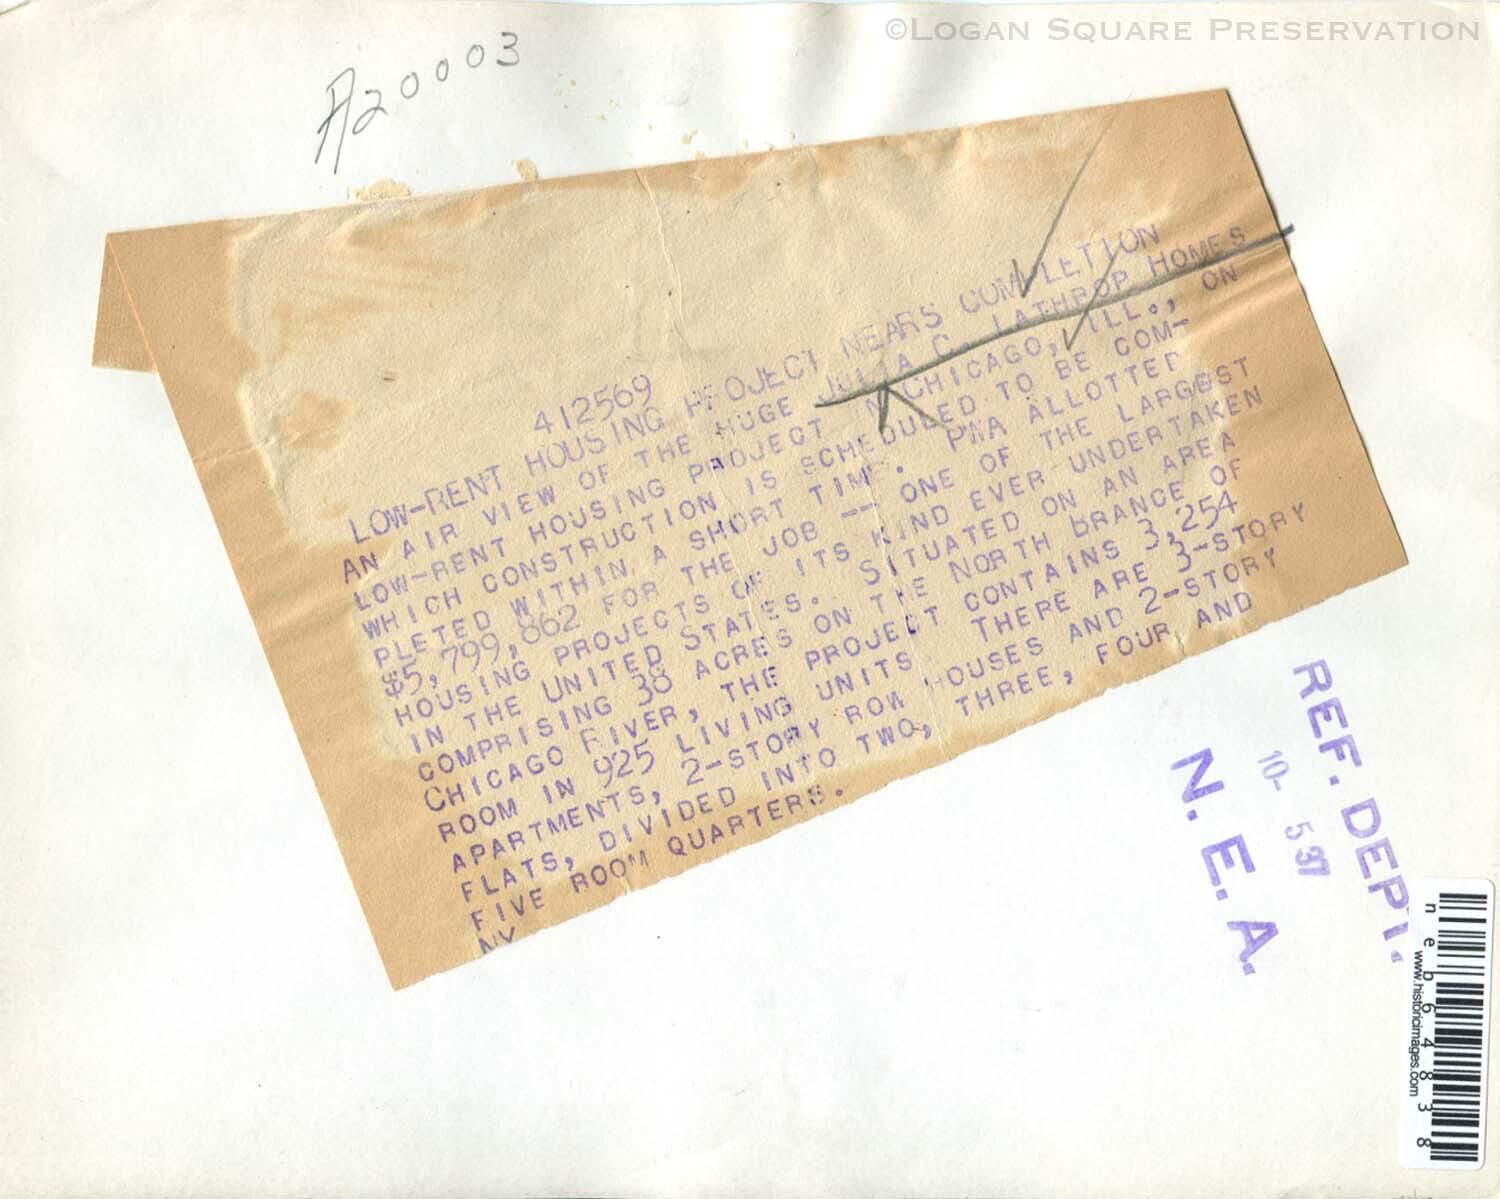 ©LOGAN SQUARE PRESERVATION
A20003
412569
LOW-RENT HOUSING PROJECT NEARS COMPLETION
AN AIR VIEW OF THE HUGE JULIA C. LATHROP HOMES
LOW-RENT HOUSING PROJECT IN CHICAGO, ILL., ON
WHICH CONSTRUCTION IS SCHEDULED TO BE COM-
PLETED WITHIN A SHORT TIME. PWA ALLOTTED
$5,799,862 FOR THE JOB -- ONE OF THE LARGEST
HOUSING PROJECTS OF ITS KIND EVER UNDERTAKEN
IN THE UNITED STATES. SITUATED ON AN AREA
COMPRISING 38 ACRES ON THE NORTH BRANCE OF
CHICAGO RIVER, THE PROJECT CONTAINS 3,254
ROOM IN 925 LIVING UNITS. THERE ARE 3-STORY
APARTMENTS, 2-STORY ROW HOUSES AND 2-STORY
FLATS, DIVIDED INTO TWO, THREE, FOUR AND
FIVE ROOM QUARTERS.
NY
REF. DEPT.
10- 5 37
N. E. A.
neb64838
www.historicimages.com